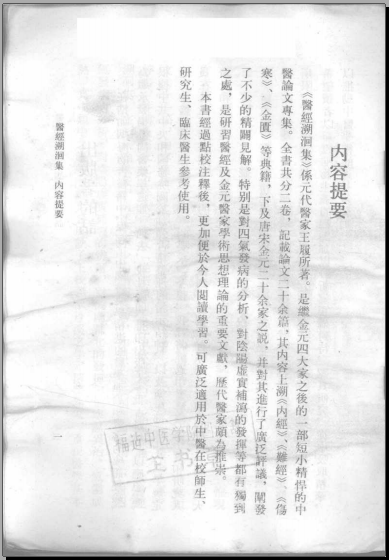 内容提要
《醫經溯洄集》係元代醫家王履所著。是繼金元四大家之後的一部短小精悍的中
醫論文專集。全書共分二卷，記載論文二十余篇，其内容上溯《内經》、《難經》、《傷
寒》、《金匱》等典籍，下及唐宋金元二十余家之説，并對其進行了廣泛評議，闡發
了不少的精闢見解。特别是對四氣發病的分析、對陰陽虚實補瀉的發揮等都有獨到
之處，是研習醫經及金元醫家學術思想理論的重要文獻，歷代醫家頗為推崇。
本書經過點校注釋後，更加便於今人閲讀學習。可廣泛適用於中醫在校師生、
研究生、臨床醫生參考使用。
醫經溯洄集 内容提要
一
福建中医学院